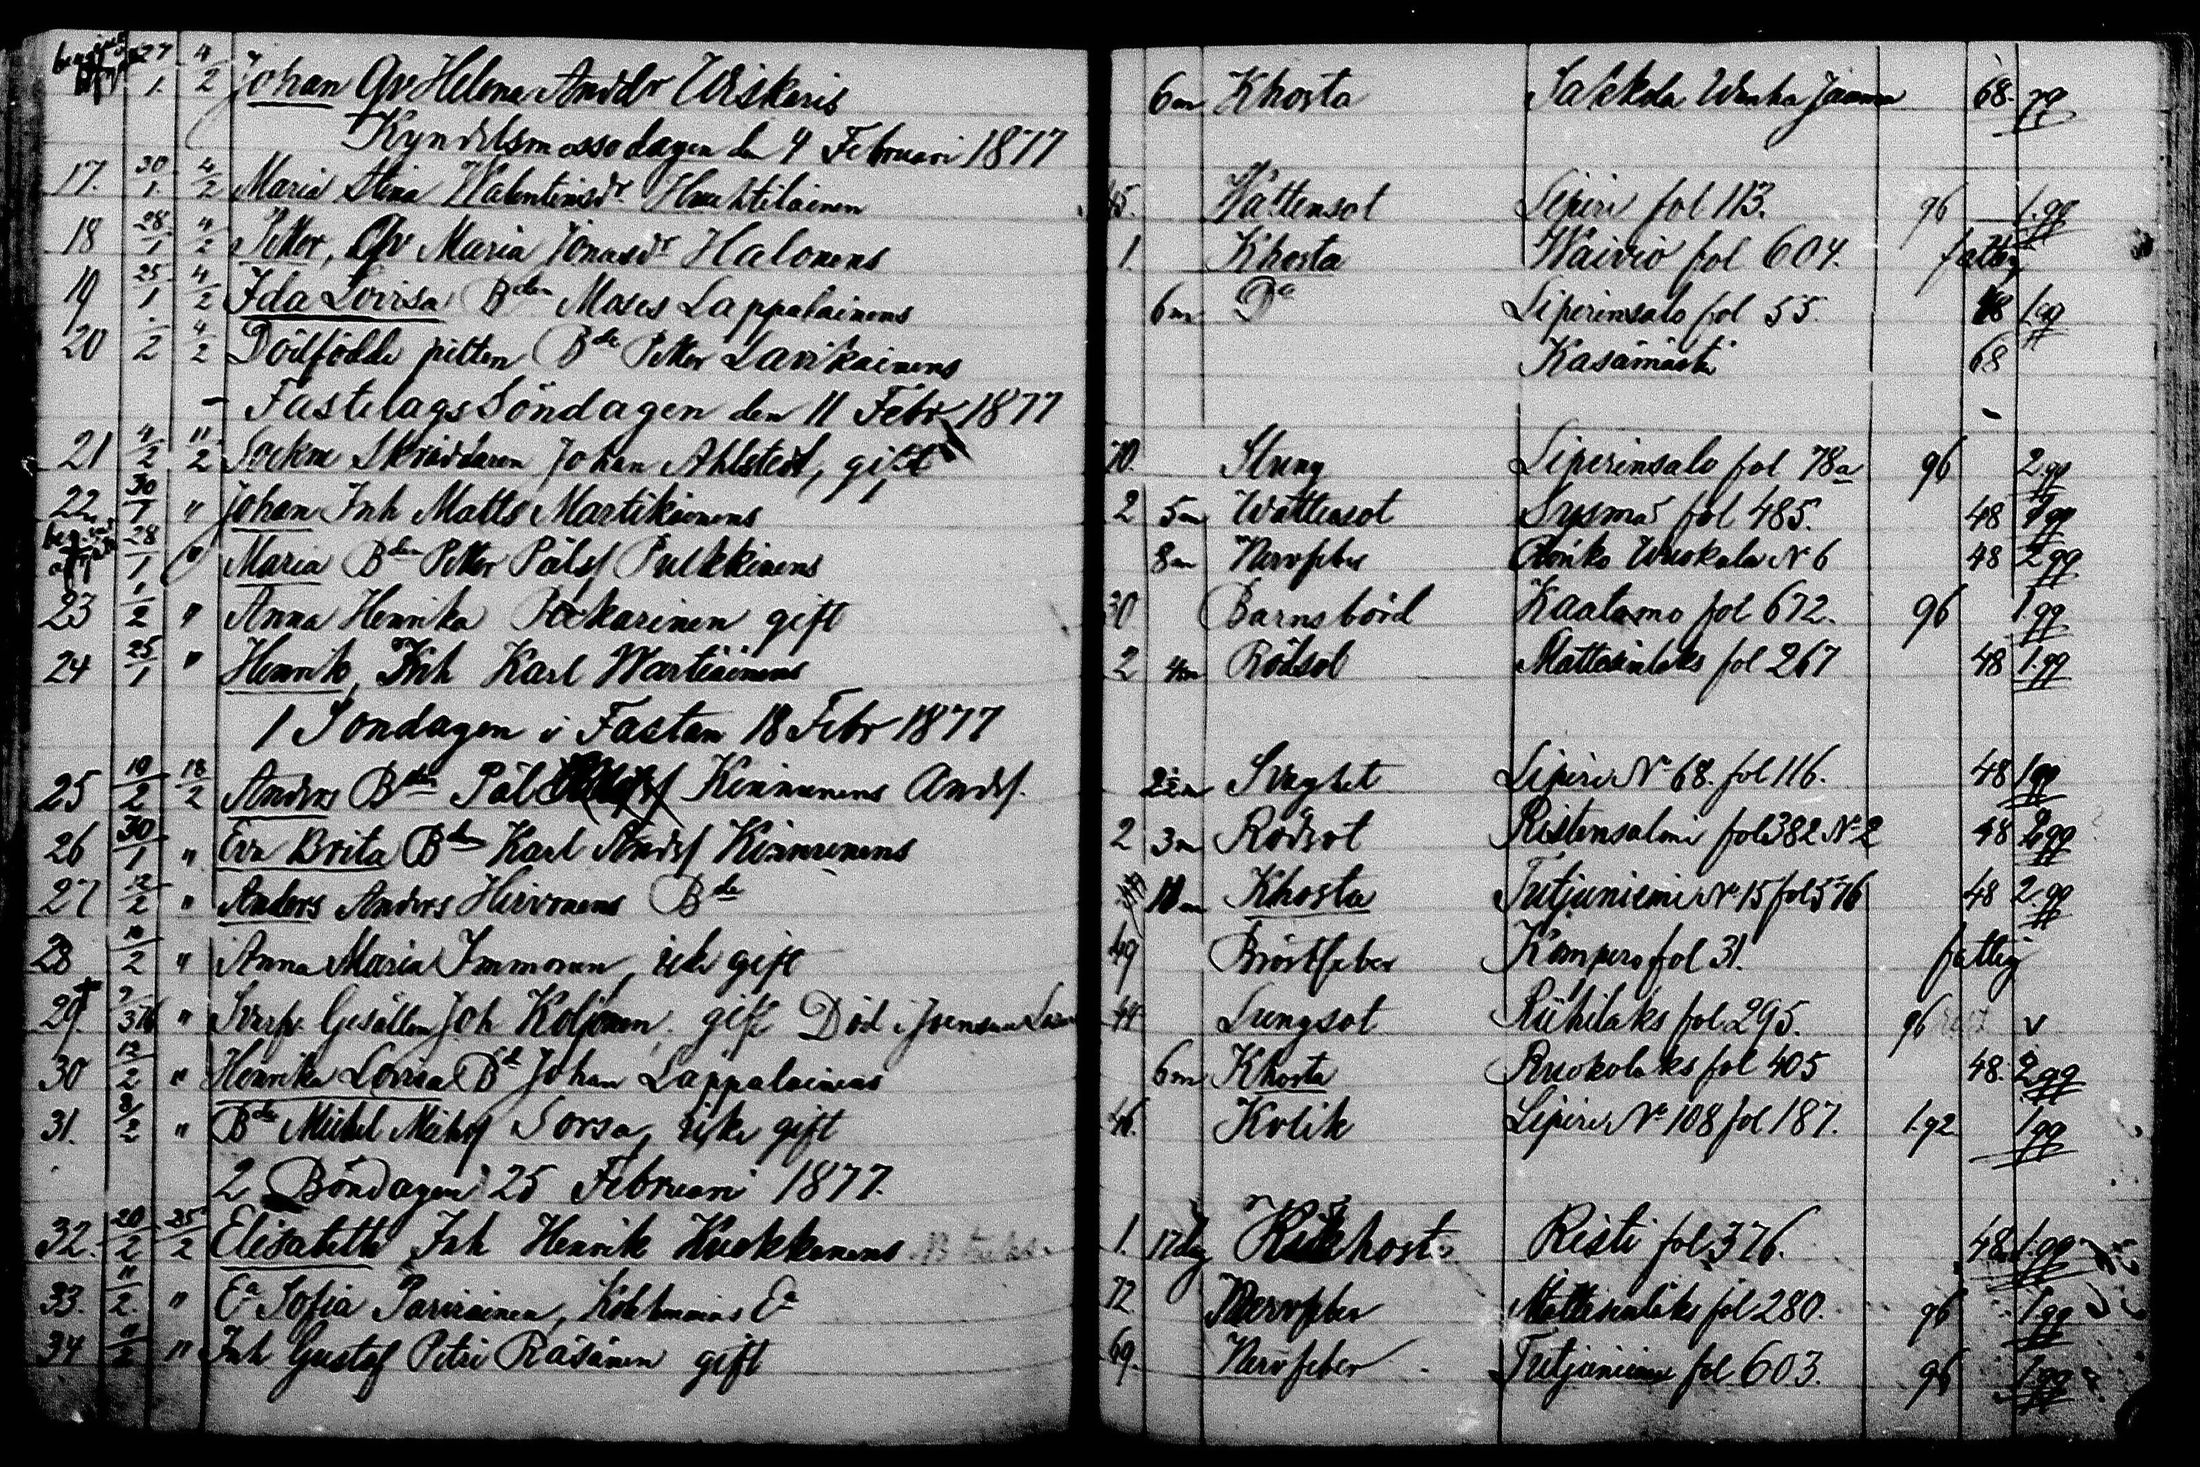 27/1. 4/2 Johan Qv Helena Andrdr Wiskaris 6m Khosta Salkola Wanha 68. gg
Kyndelsmessodagen den 4 Februari 1877
17. 30/1. 4/2 Maria Stina Walentinsdr Huuhtilainen 45. Wattensot Liperi fol 113. 96 1.gg
18 28/1 4/2 Petter, Qv Maria Jonasdr Halonens 1. Khosta Waivio fol 604. fattig
19 25/1 4/2 Ida Lovisa Bden Moses Lappalainens 6m Do Liperinsalo fol 55. 48 1gg
20 1/2 4/2 Dödfödde pilten Bde Petter Lavikainens Kasamäki 68
- FastelagsSöndagen den 11 Febr 1877
21 4/2 11/2 Sockne Skräddaren Johan Ahlstedt, gift 70. Slung Liperinsalo fol 78a 96 2.gg
22 30/1 " Johan Inh Matts Martikainens 2 5m Wattensot Sysmä fol 485. 48 gg
28/1 " Maria Bden Petter Pålss Pulkkinens 8m Nervfeber Wuokala N 6 48 2gg
23 1/2 " Anna Henrika Pockarinen gift 30 Barnsbörd Kaatamo fol 672. 96 1.gg
24 25/1 " Henrik, Inh Karl Wartiainens 2 4m Rödsot Mattisenlaks fol 267 48 1.gg
1 Söndagen i Fastan 18 Febr 1877
25 10/2 18/2 Anders Bden Pål Kinnunens Andrs. 2½m Slaghet Liperi No 68. fol 116. 48 1gg
26 30/1 " Eva Brita Bden Karl Andrs Kinnunens 2 3m Rödsot Ristensalmi fol 382 No 2 48 2gg
27 12/2 " Anders Anders Hirvonens Bde 11m Khosta Tutjuniemi No 15 fol 576 48 2.gg
28 10/2 " Anna Maria Immonen, enk gift 49 Bröstfeber Kompero fol 31. fattig
29. " Gesällen Joh Koljonen, gift Död i Joensuu 44 Lungsot Riihilaks fol 295. 96 v
30 12/2 " Henrika Lovisa Bd Johan Lappalainens 6m Khosta Ruokolaks fol 405 48. 2gg
31. 8/2 " Bde Mickel Michs Sorsa, gift 46. Kolik Liperi No 108 fol 187. 1.92 1gg
2 Böndagen 25 Februari 1877.
32. 20/2 25/2 Elisabeth Inh Henrik Kuokkanens 1. 17dag Kikhosta Risti fol 376. 48. 1.gg
33. 11/2. " Ea Sofia Parviainen, Ea 72 Nervfeber Mattisenlaks fol 280. 96 1gg
34 11/2 " Inh Gustaf Petri Räsänen gift 69. Nervfeber Tutjuniemi fol 603. 96 1gg